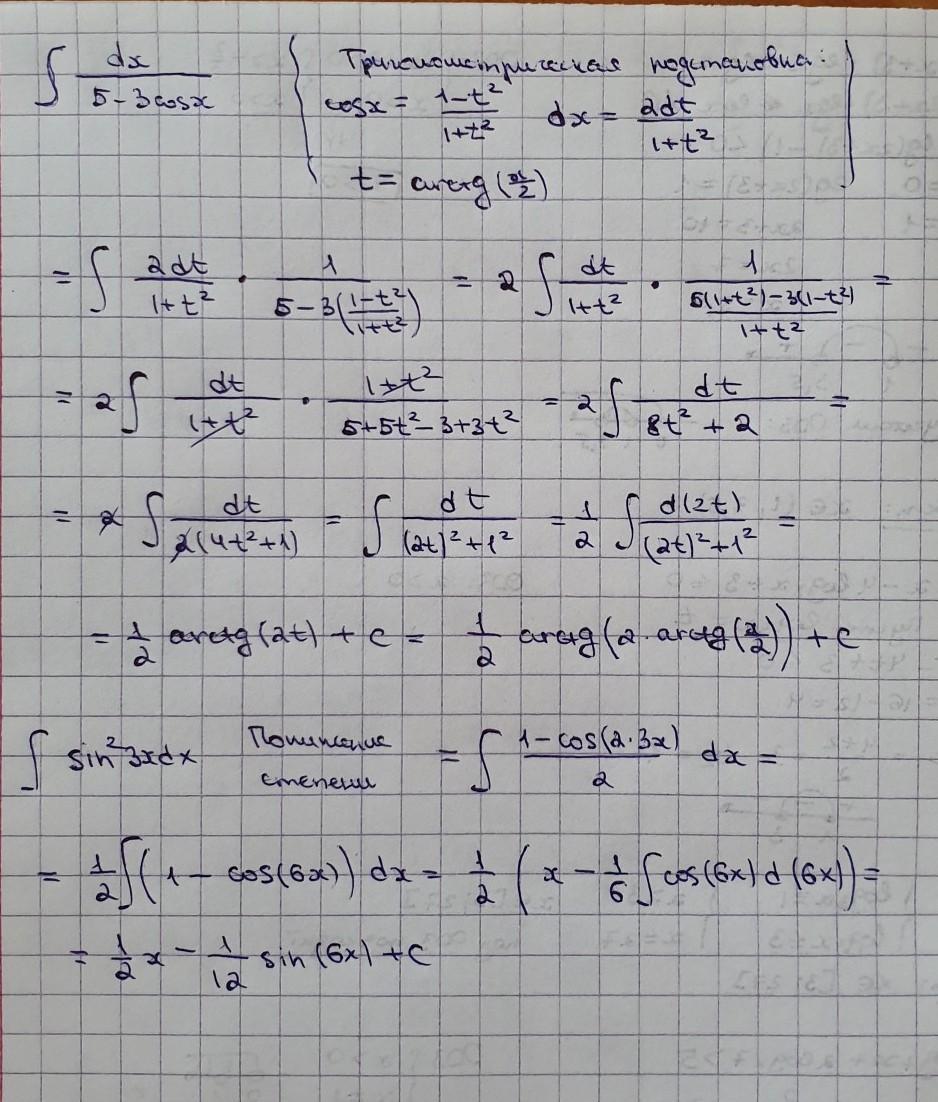 ∫ dx/(5-3cosx) { Тригонометрическая подстановка:
cosx = (1-t²)/(1+t²) dx = 2dt/(1+t²)
t = arctg(x/2) }
= ∫ 2dt/(1+t²) · 1/(5-3((1-t²)/(1+t²))) = 2 ∫ dt/(1+t²) · 1/((5(1+t²)-3(1-t²))/(1+t²)) =
= 2 ∫ dt/(1+t²) · (1+t²)/(5+5t²-3+3t²) = 2 ∫ dt/(8t²+2) =
= 2 ∫ dt/(2(4t²+1)) = ∫ dt/((2t)²+1²) = 1/2 ∫ d(2t)/((2t)²+1²) =
= 1/2 arctg(2t) + C = 1/2 arctg(2·arctg(x/2)) + C
∫ sin²3xdx Понижение степени = ∫ (1-cos(2·3x))/2 dx =
= 1/2 ∫(1 - cos(6x)) dx = 1/2 (x - 1/6 ∫cos(6x) d(6x)) =
= 1/2 x - 1/12 sin(6x) + C